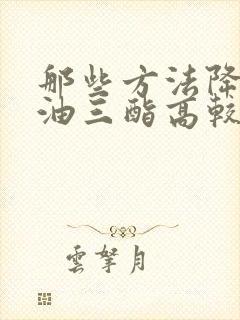 那些方法降
油三酯高较
雲拏月